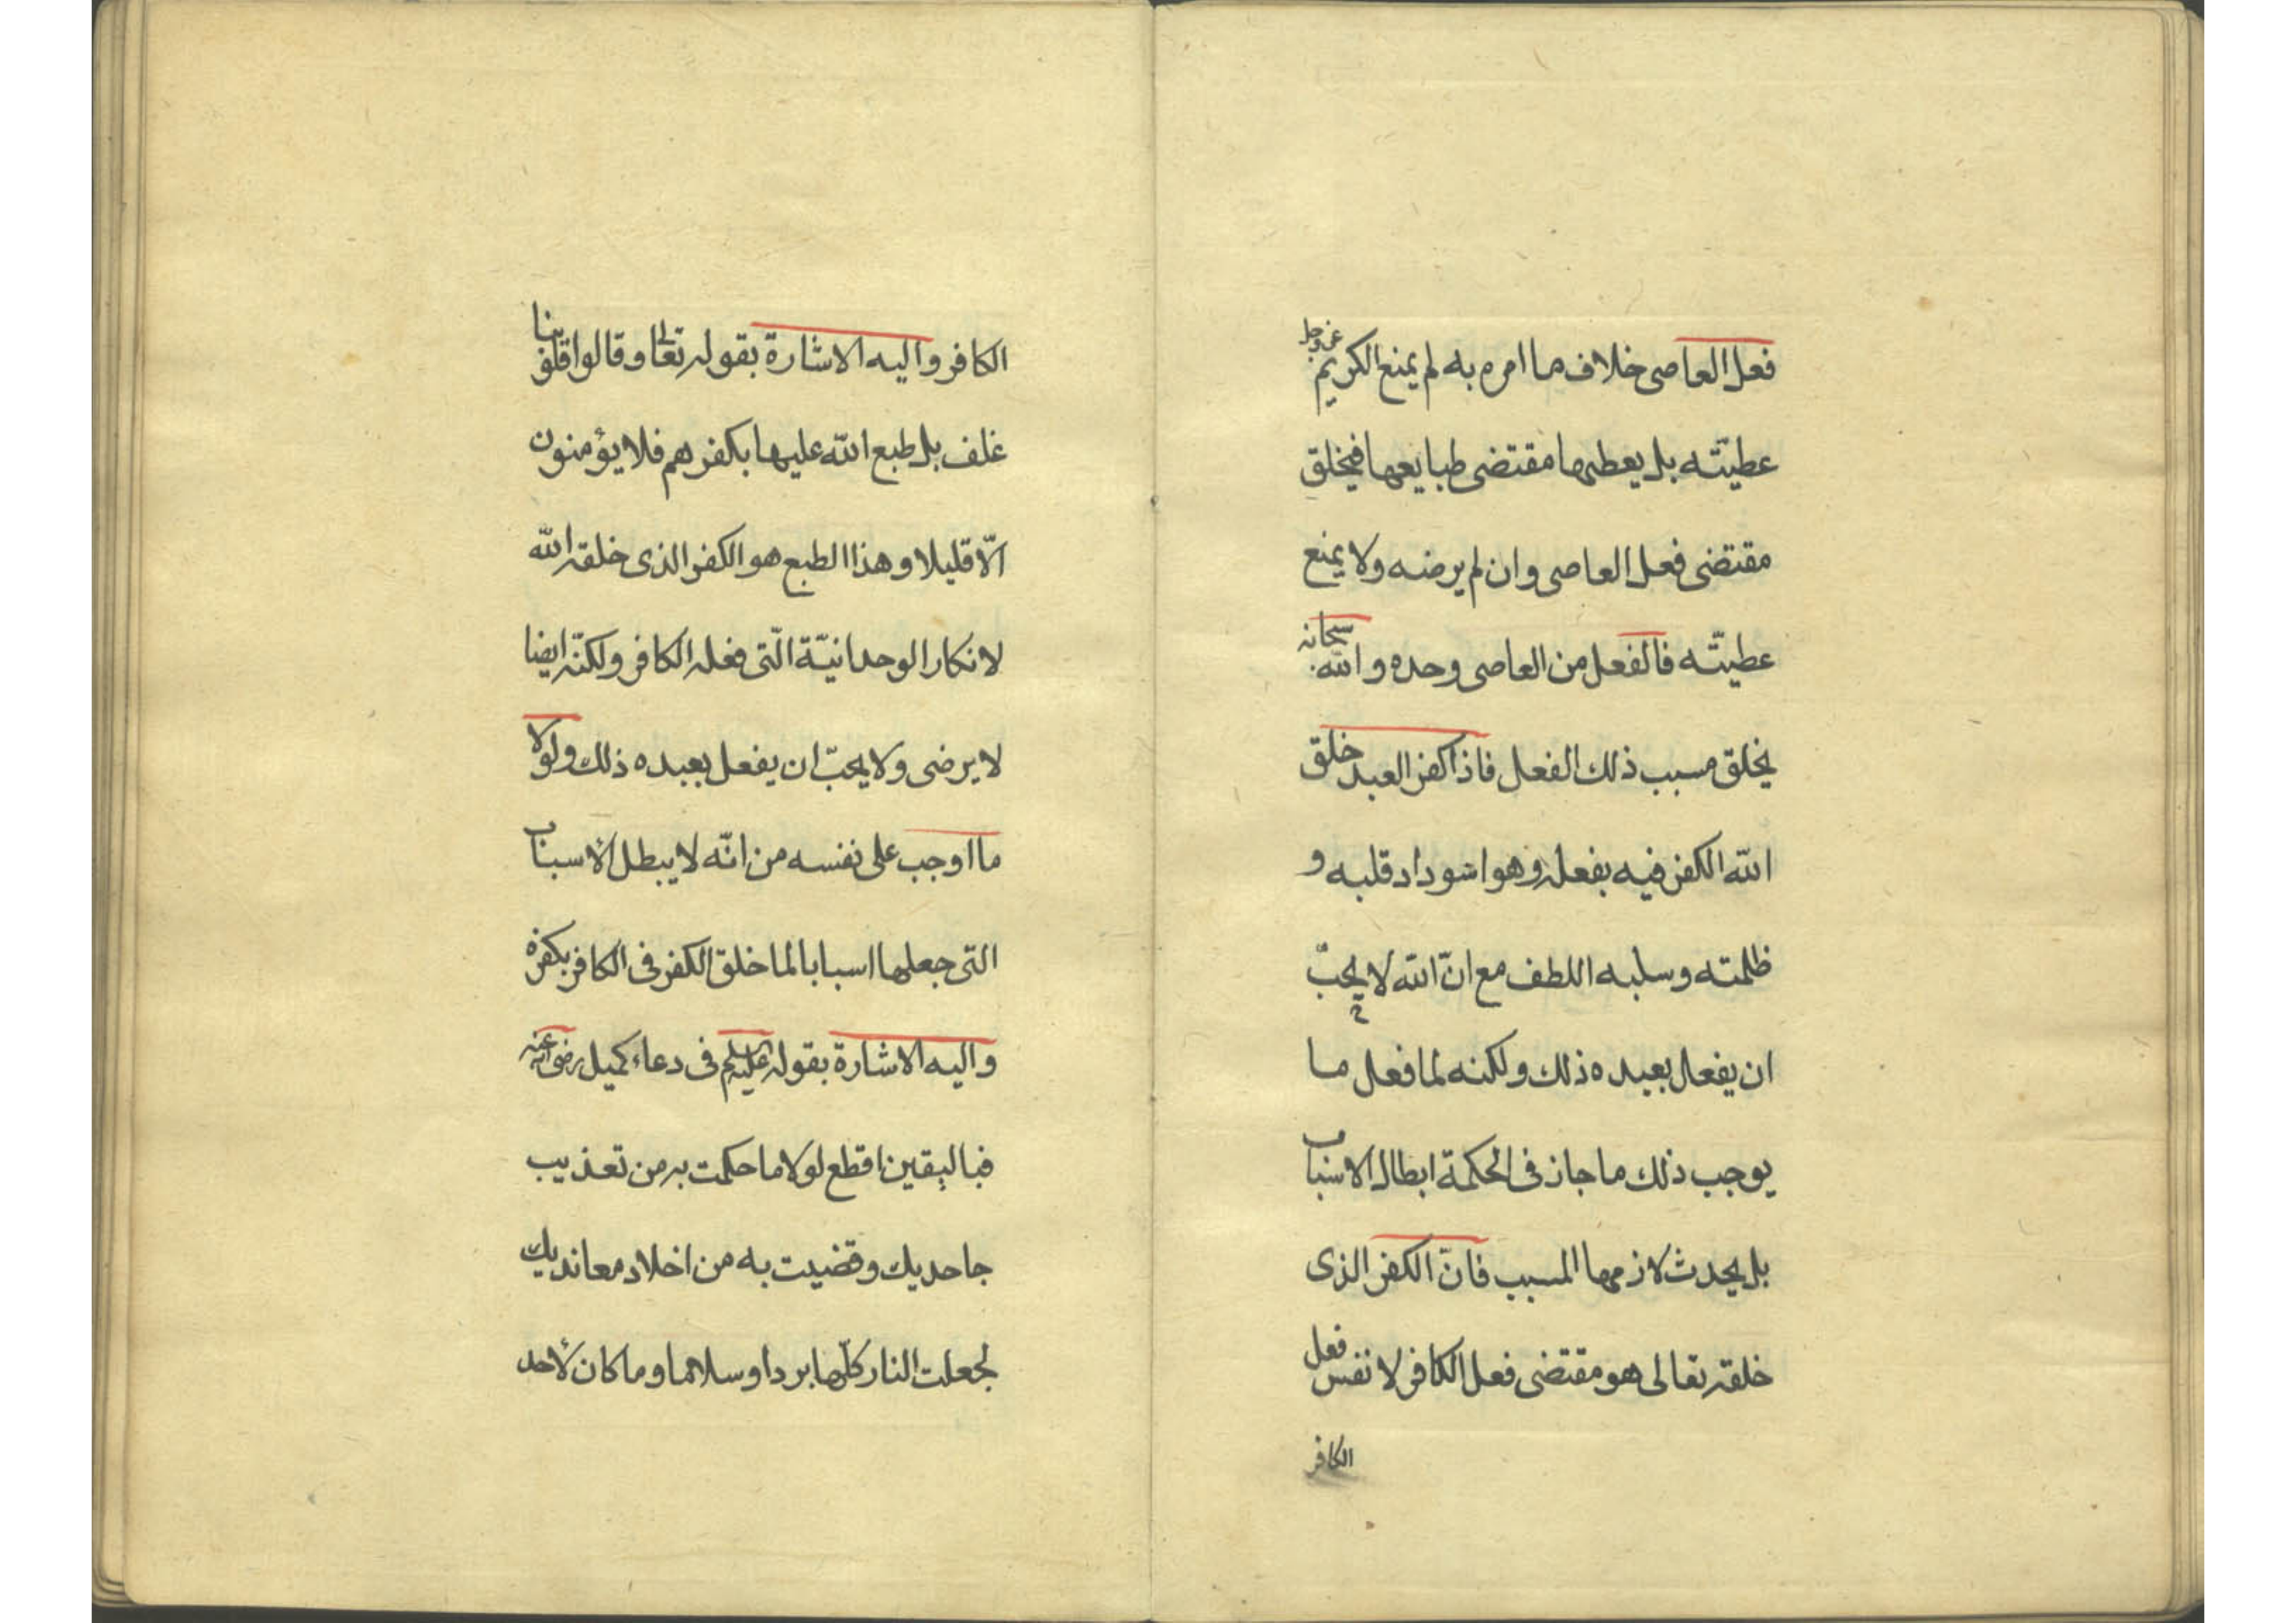 فعل العاصى خلاف ما امره به لم يمنع الكريم عز وجل
عطيتّه بل يعطيها مقتضى طبايعها فيخلق
مقتضى فعل العاصى وان لم يرضه ولا يمنع
عطيتّه فالفعل من العاصى وحده والله سبحانه
يخلق مسبب ذلك الفعل فاذا كفر العبد خلق
الله الكفر فيه بفعله وهو اسوداد قلبه و
ظلمته وسلبه اللطف مع انّ الله لا يحبّ
ان يفعل بعبده ذلك ولكنه لما فعل ما
يوجب ذلك ما جاز فى الحكمة ابطال الاسباب
بل يحدث لازمها المسبب فانّ الكفر الذى
خلقه تعالى هو مقتضى فعل الكافر لا نفس فعل
الكافر
الكافر واليه الاشارة بقوله تعالى وقالوا قلوبنا
غلف بل طبع الله عليها بكفرهم فلا يؤمنون
الّا قليلا وهذا الطبع هو الكفر الذى خلقه الله
لانكار الوحدانيّة الّتى فعله الكافر ولكنّه ايضا
لا يرضى ولا يحبّ ان يفعل بعبده ذلك ولولا
ما اوجب على نفسه من انّه لا يبطل الأسباب
التى جعلها اسبابا لما خلق الكفر فى الكافر بكفره
واليه الاشارة بقوله عليه السلم فى دعاء كميل رضى الله عنه
فباليقين اقطع لولا ما حكمت به من تعذيب
جاحديك وقضيت به من اخلاد معانديك
لجعلت النار كلّها بردا وسلاما وما كان لأحد